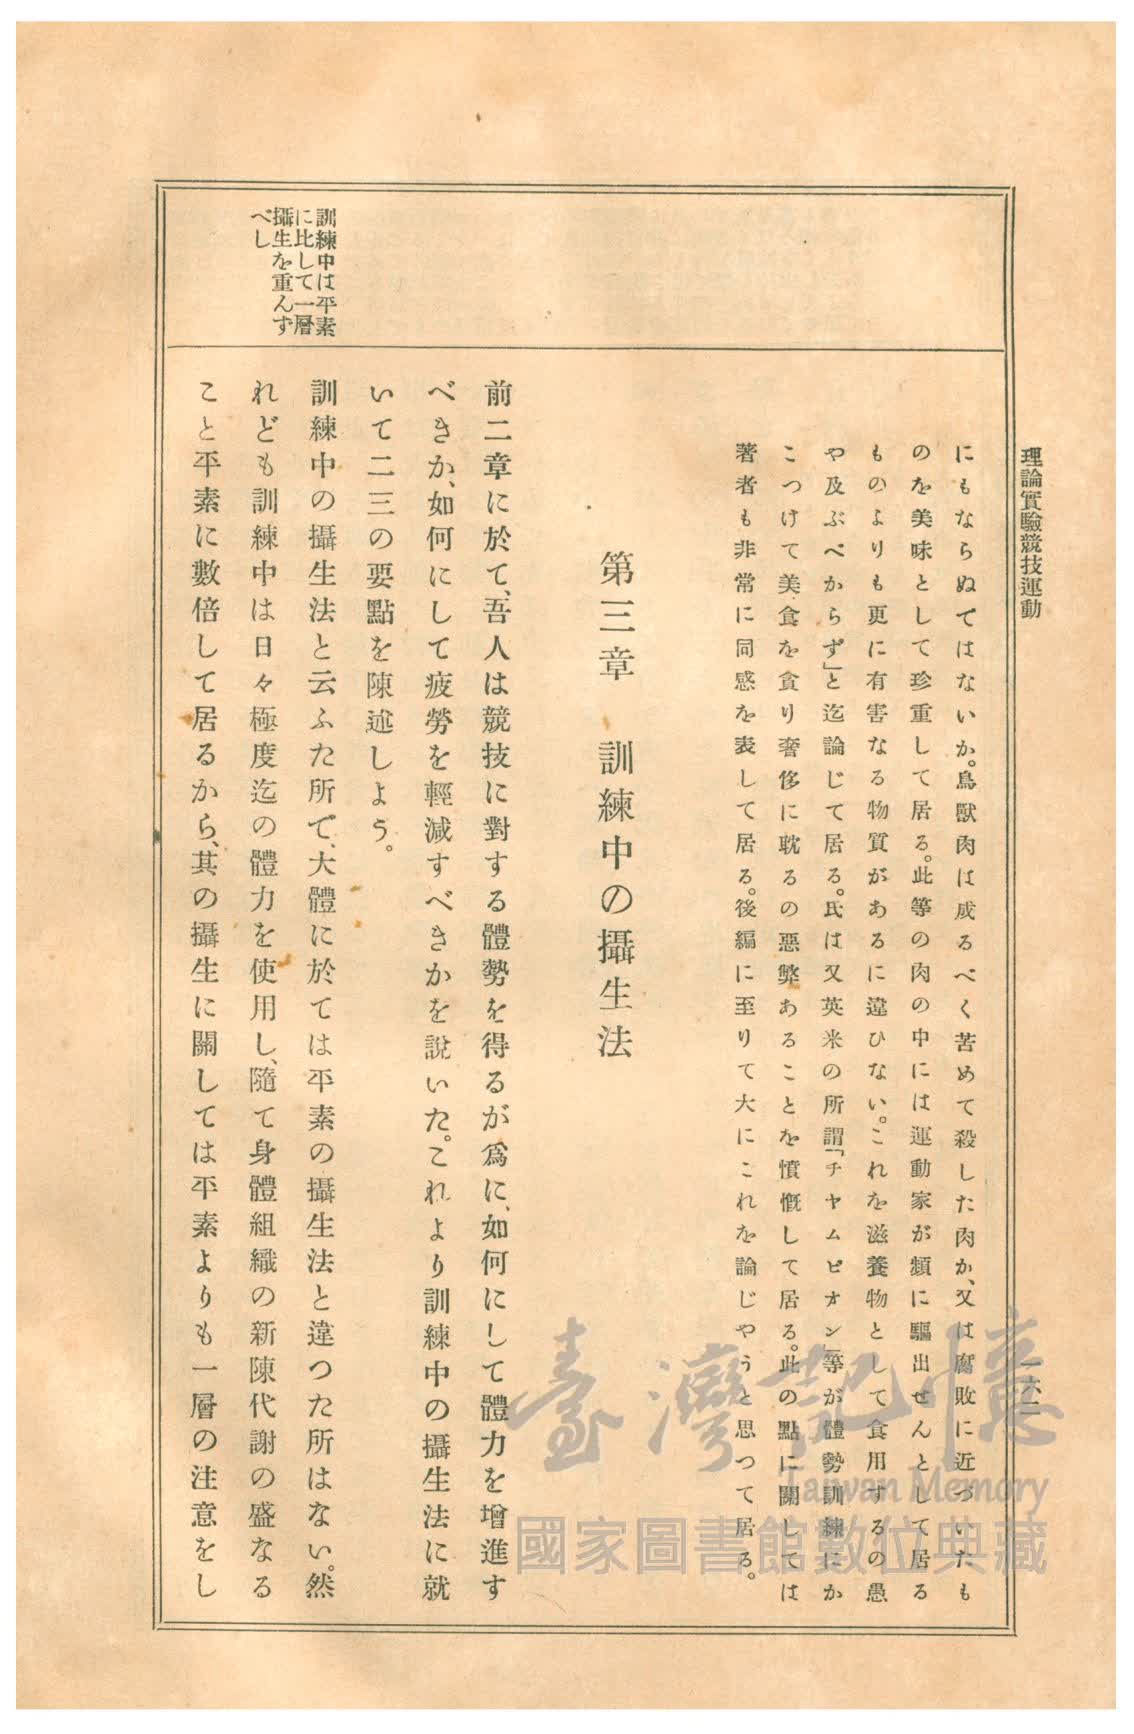 理論實驗競技運動
一六二
にもならぬではないか。鳥獸肉は成るべく苦めて殺した肉か、又は腐敗に近づいたも
のを美味として珍重して居る。此等の肉の中には運動家が頻に驅出せんとして居る
ものよりも更に有害なる物質があるに違ひない。これを滋養物として食用するの愚
や及ぶべからず」と迄論じて居る。氏は又英米の所謂「チヤムピオン」等が體勢訓練にか
こつけて美食を貪り奢侈に耽るの惡弊あることを憤慨して居る。此の點に關しては
著者も非常に同感を表して居る。後編に至りて大にこれを論じやうと思つて居る。
第三章　訓練中の攝生法
前二章に於て、吾人は競技に對する體勢を得るが爲に、如何にして體力を增進す
べきか、如何にして疲勞を輕減すべきかを說いた。これより訓練中の攝生法に就
いて二三の要點を陳述しよう。
訓練中は平素
に比して一層
攝生を重んず
べし
訓練中の攝生法と云ふた所で、大體に於ては平素の攝生法と違つた所はない。然
れども訓練中は日々極度迄の體力を使用し、隨て身體組織の新陳代謝の盛なる
こと平素に數倍して居るから、其の攝生に關しては平素よりも一層の注意をし
臺灣記憶
Taiwan Memory
國家圖書館數位典藏